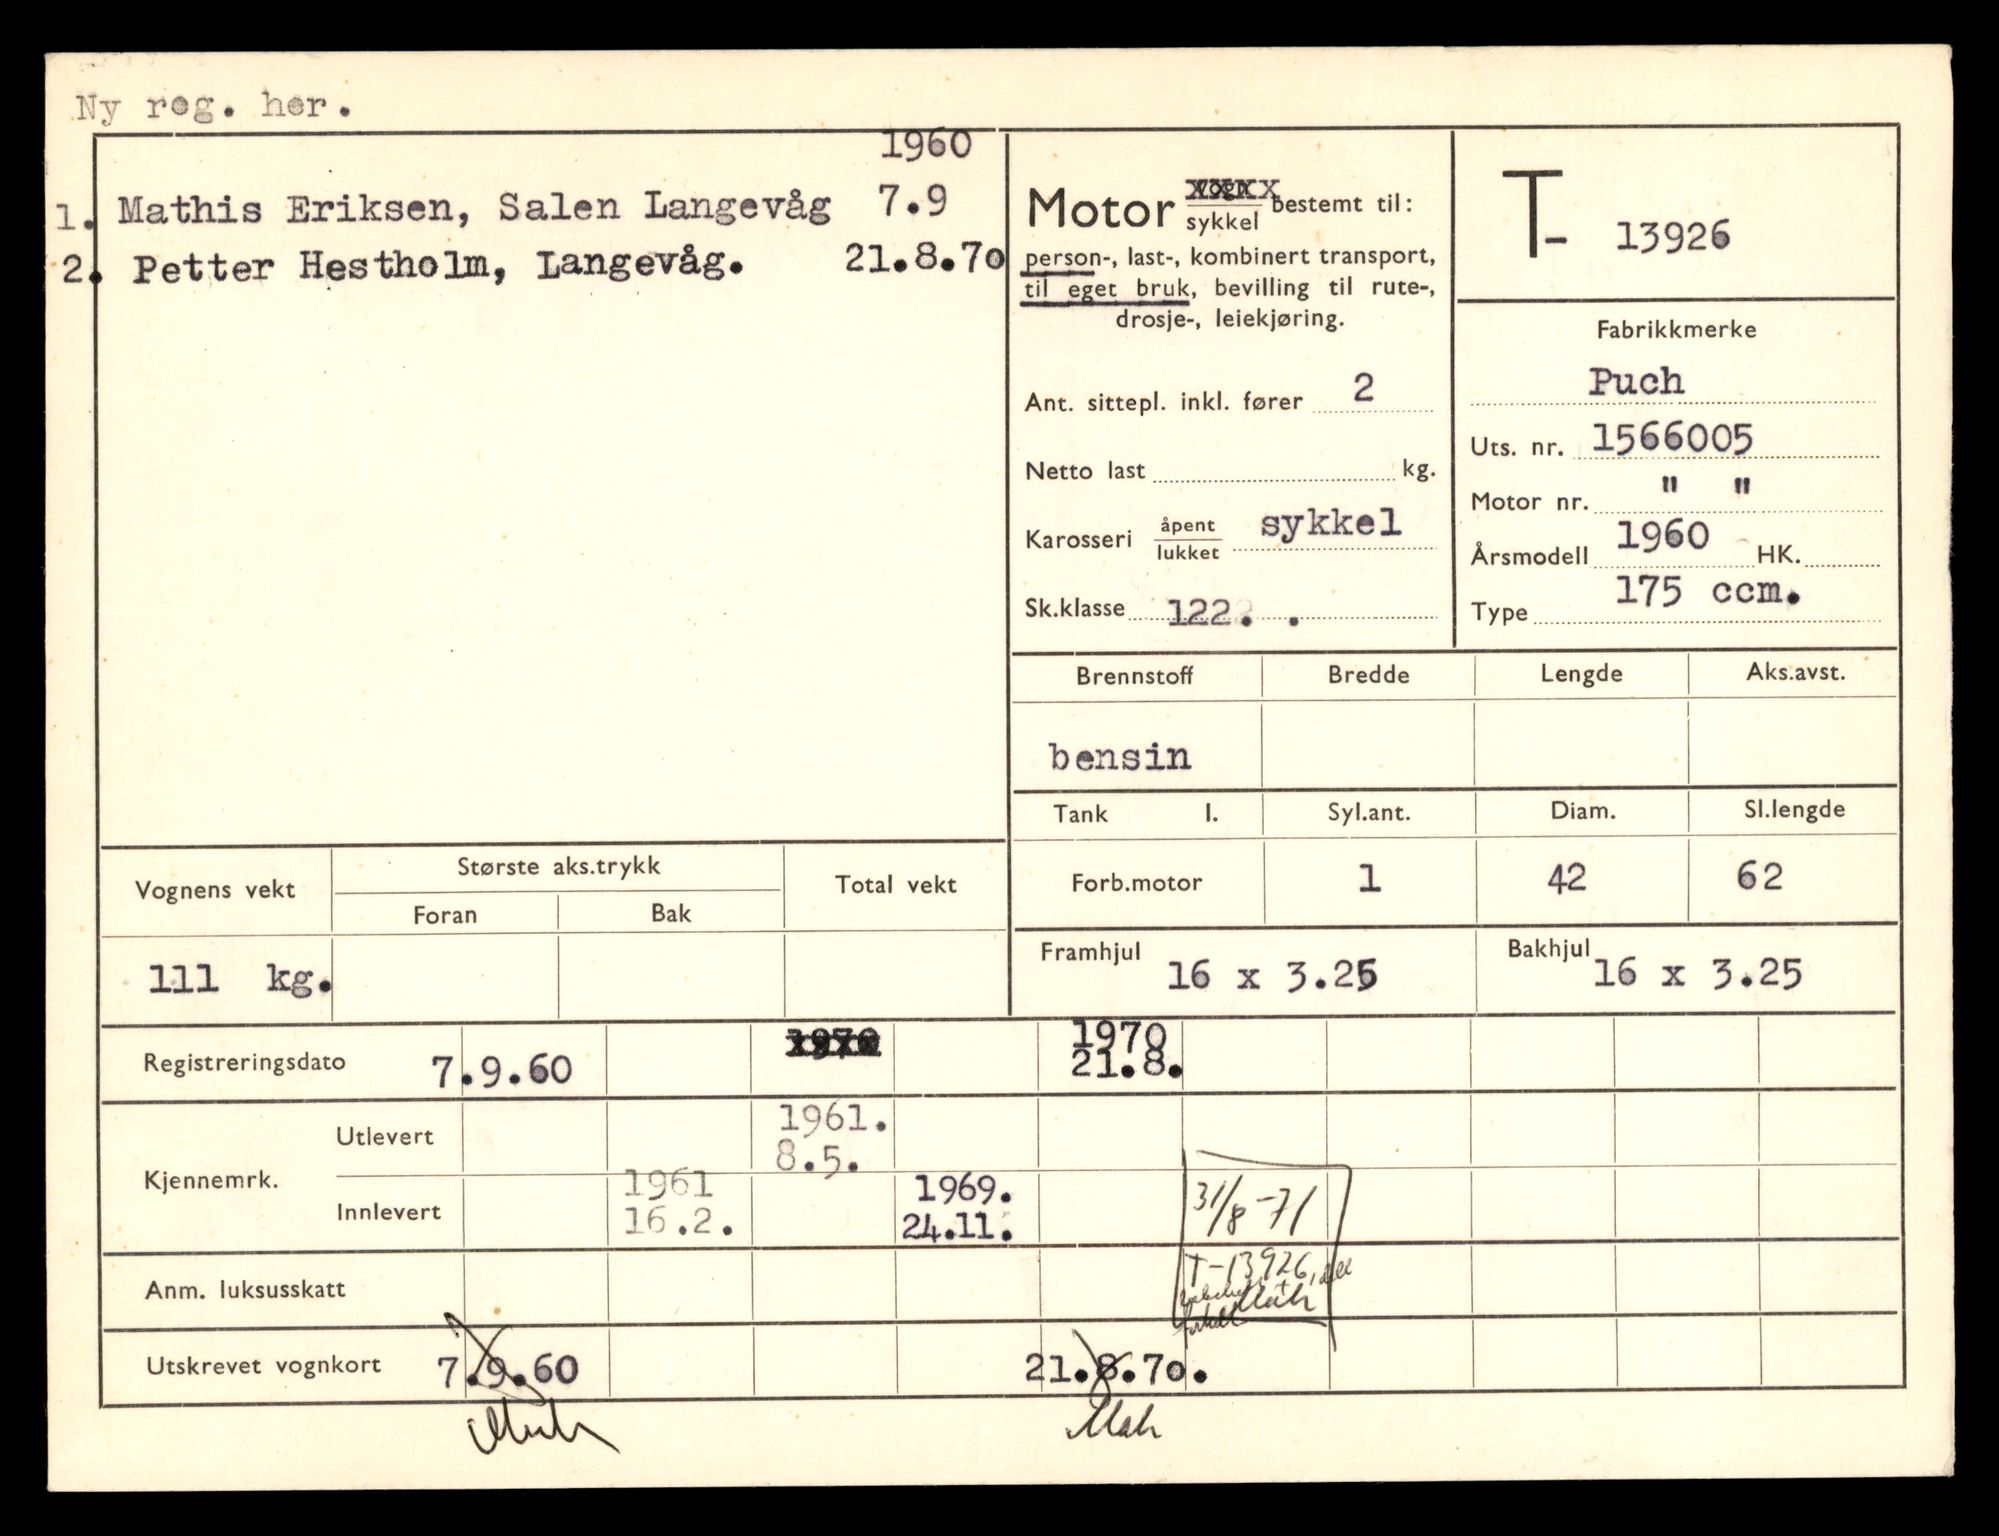 Ny reg. her.
1960
1. Mathis Eriksen, Salen Langevåg 7.9
2. Petter Hestholm, Langevåg. 21.8.70
Motor vogn
sykkel bestemt til:
person-, last-, kombinert transport,
til eget bruk, bevilling til rute-,
drosje-, leiekjøring.
Ant. sittepl. inkl. fører 2
Netto last kg.
Karosseri åpent
lukket sykkel
Sk.klasse 122. .
T- 13926
Fabrikkmerke
Puch
Uts. nr. 1566005
Motor nr. " "
Årsmodell 1960 HK.
Type 175 ccm.
Brennstoff Bredde Lengde Aks.avst.
bensin
Tank l. Syl.ant. Diam. Sl.lengde
Forb.motor 1 42 62
Framhjul 16 x 3.25 Bakhjul 16 x 3.25
Vognens vekt Største aks.trykk Total vekt
Foran Bak
111 kg.
1970 1970
Registreringsdato 7.9.60 21.8.
1961.
Utlevert 8.5.
Kjennemrk.
1961 1969.
Innlevert 16.2. 24.11.
31/8-71
T-13926,
Anm. luksusskatt
Utskrevet vognkort 7.9.60 21.8.70.